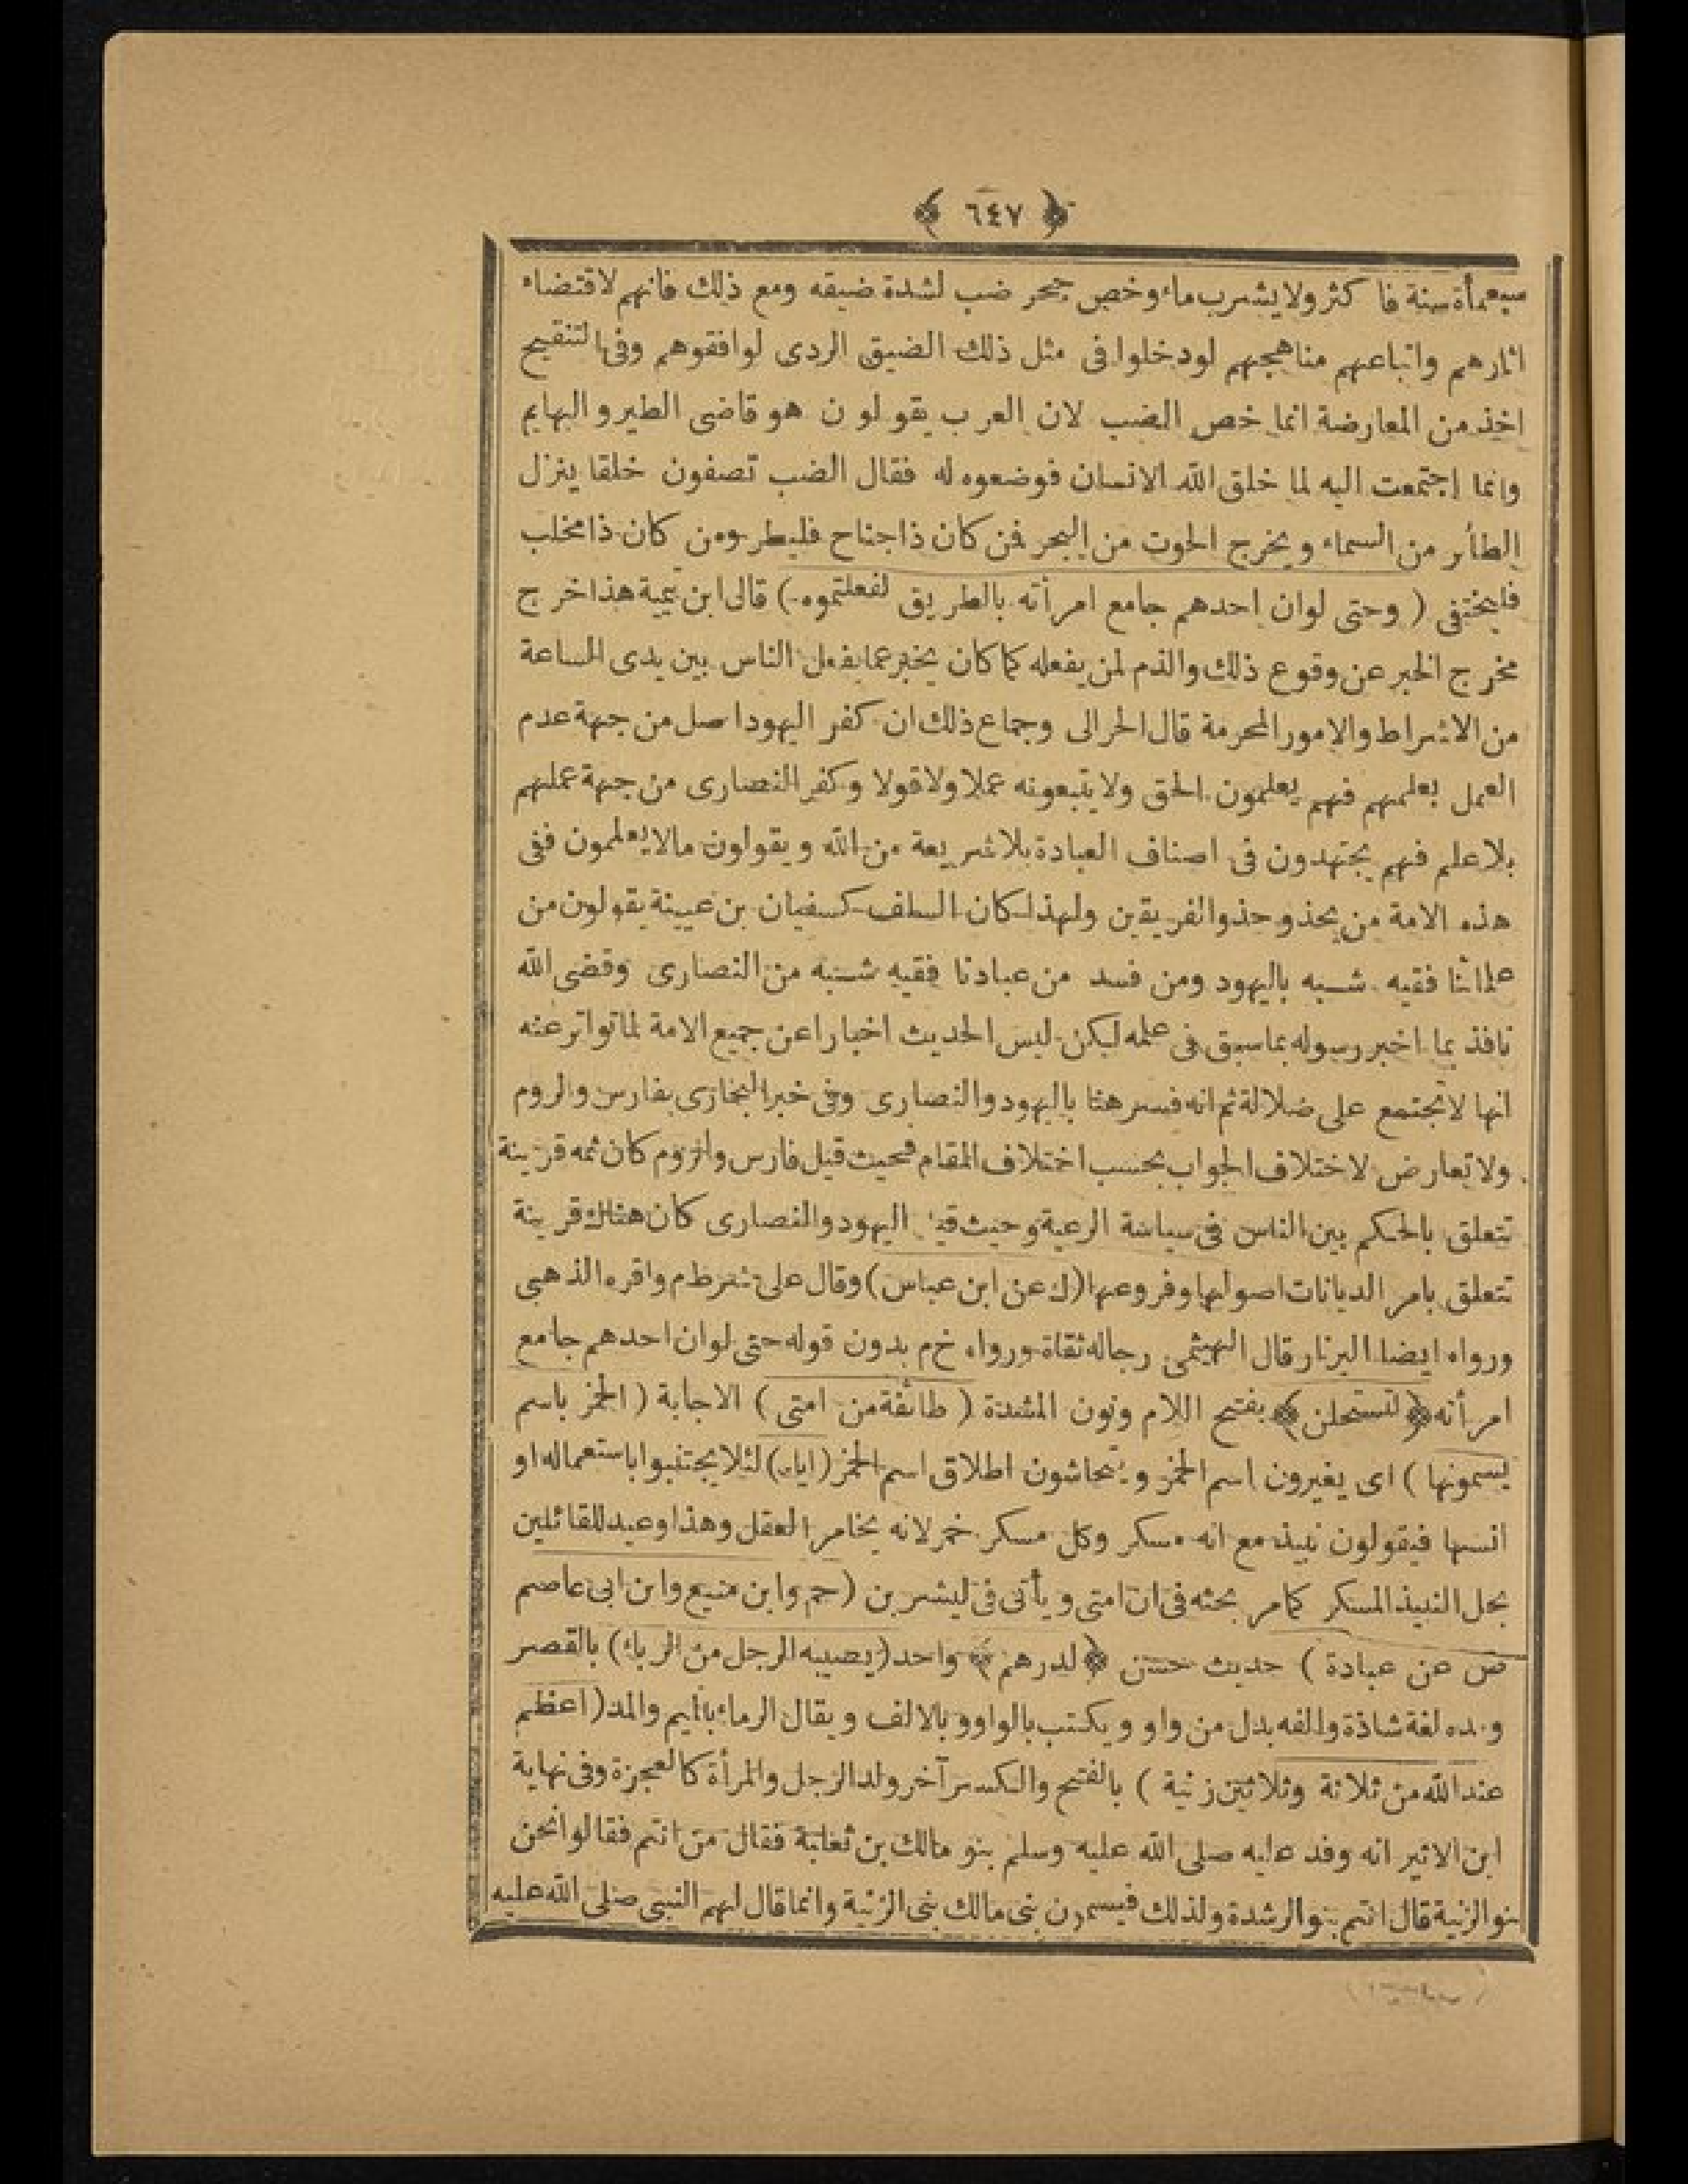 ﴿ ٦٤٧ ﴾
سبعمأة سنة فا كثر ولا يشرب ماء وخص جحر ضب لشدة ضيقه ومع ذلك فانهم لاقتضاء
اثارهم واتباعهم مناهجهم لودخلوا فى مثل ذلك الضيق الردى لوافقوهم وفى التنقيح
اخذ من المعارضة انما خص الضب لان العرب يقولون هو قاضى الطير والبهايم
وانما اجتمعت اليه لما خلق الله الانسان فوضعوه له فقال الضب تصفون خلقا ينزل
الطائر من السماء ويخرج الحوت من البحر فمن كان ذا جناح فليطر ومن كان ذا مخلب
فليختفى ( وحتى لوان احدهم جامع امرأته بالطريق لفعلتموه ) قال ابن تيمية هذا خرج
مخرج الخبر عن وقوع ذلك والذم لمن يفعله كما كان يخبر عما يفعل الناس بين يدى الساعة
من الاشراط والامور المحرمة قال الحرالى وجماع ذلك ان كفر اليهود اصل من جهة عدم
العمل بعلمهم فهم يعلمون الحق ولا يتبعونه عملا ولا قولا وكفر النصارى من جهة عملهم
بلا علم فهم يجتهدون فى اصناف العبادة بلا شريعة من الله ويقولون مالا يعلمون ففى
هذه الامة من يحذو حذو الفريقين ولهذا كان السلف كسفيان بن عيينة يقولون من
علمائنا فقيه شبه باليهود ومن فسد من عبادنا فقيه شبه من النصارى وقضى الله
نافذ بما اخبر رسوله بما سبق فى علمه لكن ليس الحديث اخبارا عن جميع الامة لما تواتر عنه
انها لا تجتمع على ضلالة ثم انه فسر هنا باليهود والنصارى وفى خبر البخارى بفارس والروم
ولا تعارض لاختلاف الجواب بحسب اختلاف المقام فحيث قيل فارس والروم كان ثمه قرينة
تتعلق بالحكم بين الناس فى سياسة الرعية وحيث قيل اليهود والنصارى كان هناك قرينة
تتعلق بامر الديانات اصولها وفروعها (ك عن ابن عباس) وقال على شرط م واقره الذهبى
ورواه ايضا البزار قال الهيثمى رجاله ثقاة ورواه خ م بدون قوله حتى لوان احدهم جامع
امرأته ﴿ لتستحلن ﴾ بفتح اللام ونون المشددة ( طائفة من امتى ) الاجابة ( الخمر باسم
يسمونها ) اى يغيرون اسم الخمر ويتحاشون اطلاق اسم الخمر (اياه) لئلا يجتنبوا باستعماله او
انسها فيقولون نبيذ مع انه مسكر وكل مسكر خمر لانه يخامر العقل وهذا وعيد للقائلين
بحل النبيذ المسكر كمامر بحثه فى ان امتى ويأتى فى ليشربن (حم وابن منيع وابن ابى عاصم
ض عن عبادة ) حديث حسن ﴿ لدرهم ﴾ واحد (يصيبه الرجل من الرباء) بالقصر
ومده لغة شاذة والفه بدل من واو ويكتب بالواو وبالالف ويقال الرماء بالميم والمد (اعظم
عند الله من ثلاثة وثلاثين زنية ) بالفتح والكسر آخر ولد الرجل والمرأة كالعجزة وفى نهاية
ابن الاثير انه وفد عليه صلى الله عليه وسلم بنو مالك بن ثعلبة فقال من انتم فقالوا نحن
بنو الزنية قال انتم بنو الرشدة ولذلك فيسمون بنى مالك بنى الزنية وانما قال لهم النبى صلى الله عليه